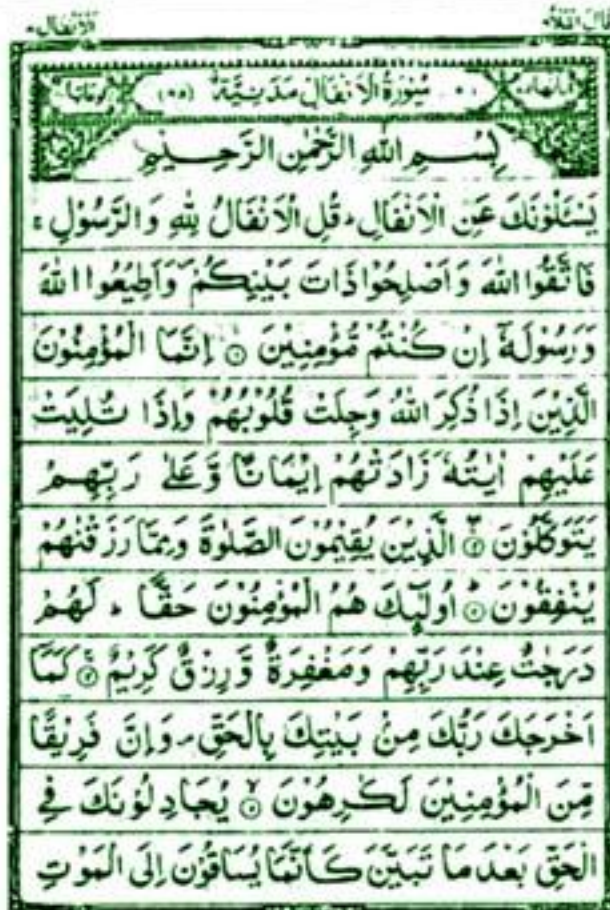 قال الملأ ٩
الانفال ٨
سُوْرَةُ الْاَنْفَالِ مَدَنِيَّةٌ
بِسْمِ اللهِ الرَّحْمٰنِ الرَّحِيْمِ
يَسْئَلُوْنَكَ عَنِ الْاَنْفَالِ ؕ قُلِ الْاَنْفَالُ لِلّٰهِ وَالرَّسُوْلِ ۚ
فَاتَّقُوا اللهَ وَاَصْلِحُوْا ذَاتَ بَيْنِكُمْ ۪ وَاَطِيْعُوا اللهَ
وَرَسُوْلَهٗۤ اِنْ كُنْتُمْ مُّؤْمِنِيْنَ ۝۱ اِنَّمَا الْمُؤْمِنُوْنَ
الَّذِيْنَ اِذَا ذُكِرَ اللهُ وَجِلَتْ قُلُوْبُهُمْ وَاِذَا تُلِيَتْ
عَلَيْهِمْ اٰيٰتُهٗ زَادَتْهُمْ اِيْمَانًا وَّعَلٰى رَبِّهِمْ
يَتَوَكَّلُوْنَ ۝۲ الَّذِيْنَ يُقِيْمُوْنَ الصَّلٰوةَ وَمِمَّا رَزَقْنٰهُمْ
يُنْفِقُوْنَ ۝۳ اُولٰٓئِكَ هُمُ الْمُؤْمِنُوْنَ حَقًّا ؕ لَهُمْ
دَرَجٰتٌ عِنْدَ رَبِّهِمْ وَمَغْفِرَةٌ وَّرِزْقٌ كَرِيْمٌ ۝۴ كَمَاۤ
اَخْرَجَكَ رَبُّكَ مِنْۢ بَيْتِكَ بِالْحَقِّ ۪ وَاِنَّ فَرِيْقًا
مِّنَ الْمُؤْمِنِيْنَ لَكٰرِهُوْنَ ۝۵ يُجَادِلُوْنَكَ فِي
الْحَقِّ بَعْدَ مَا تَبَيَّنَ كَاَنَّمَا يُسَاقُوْنَ اِلَى الْمَوْتِ